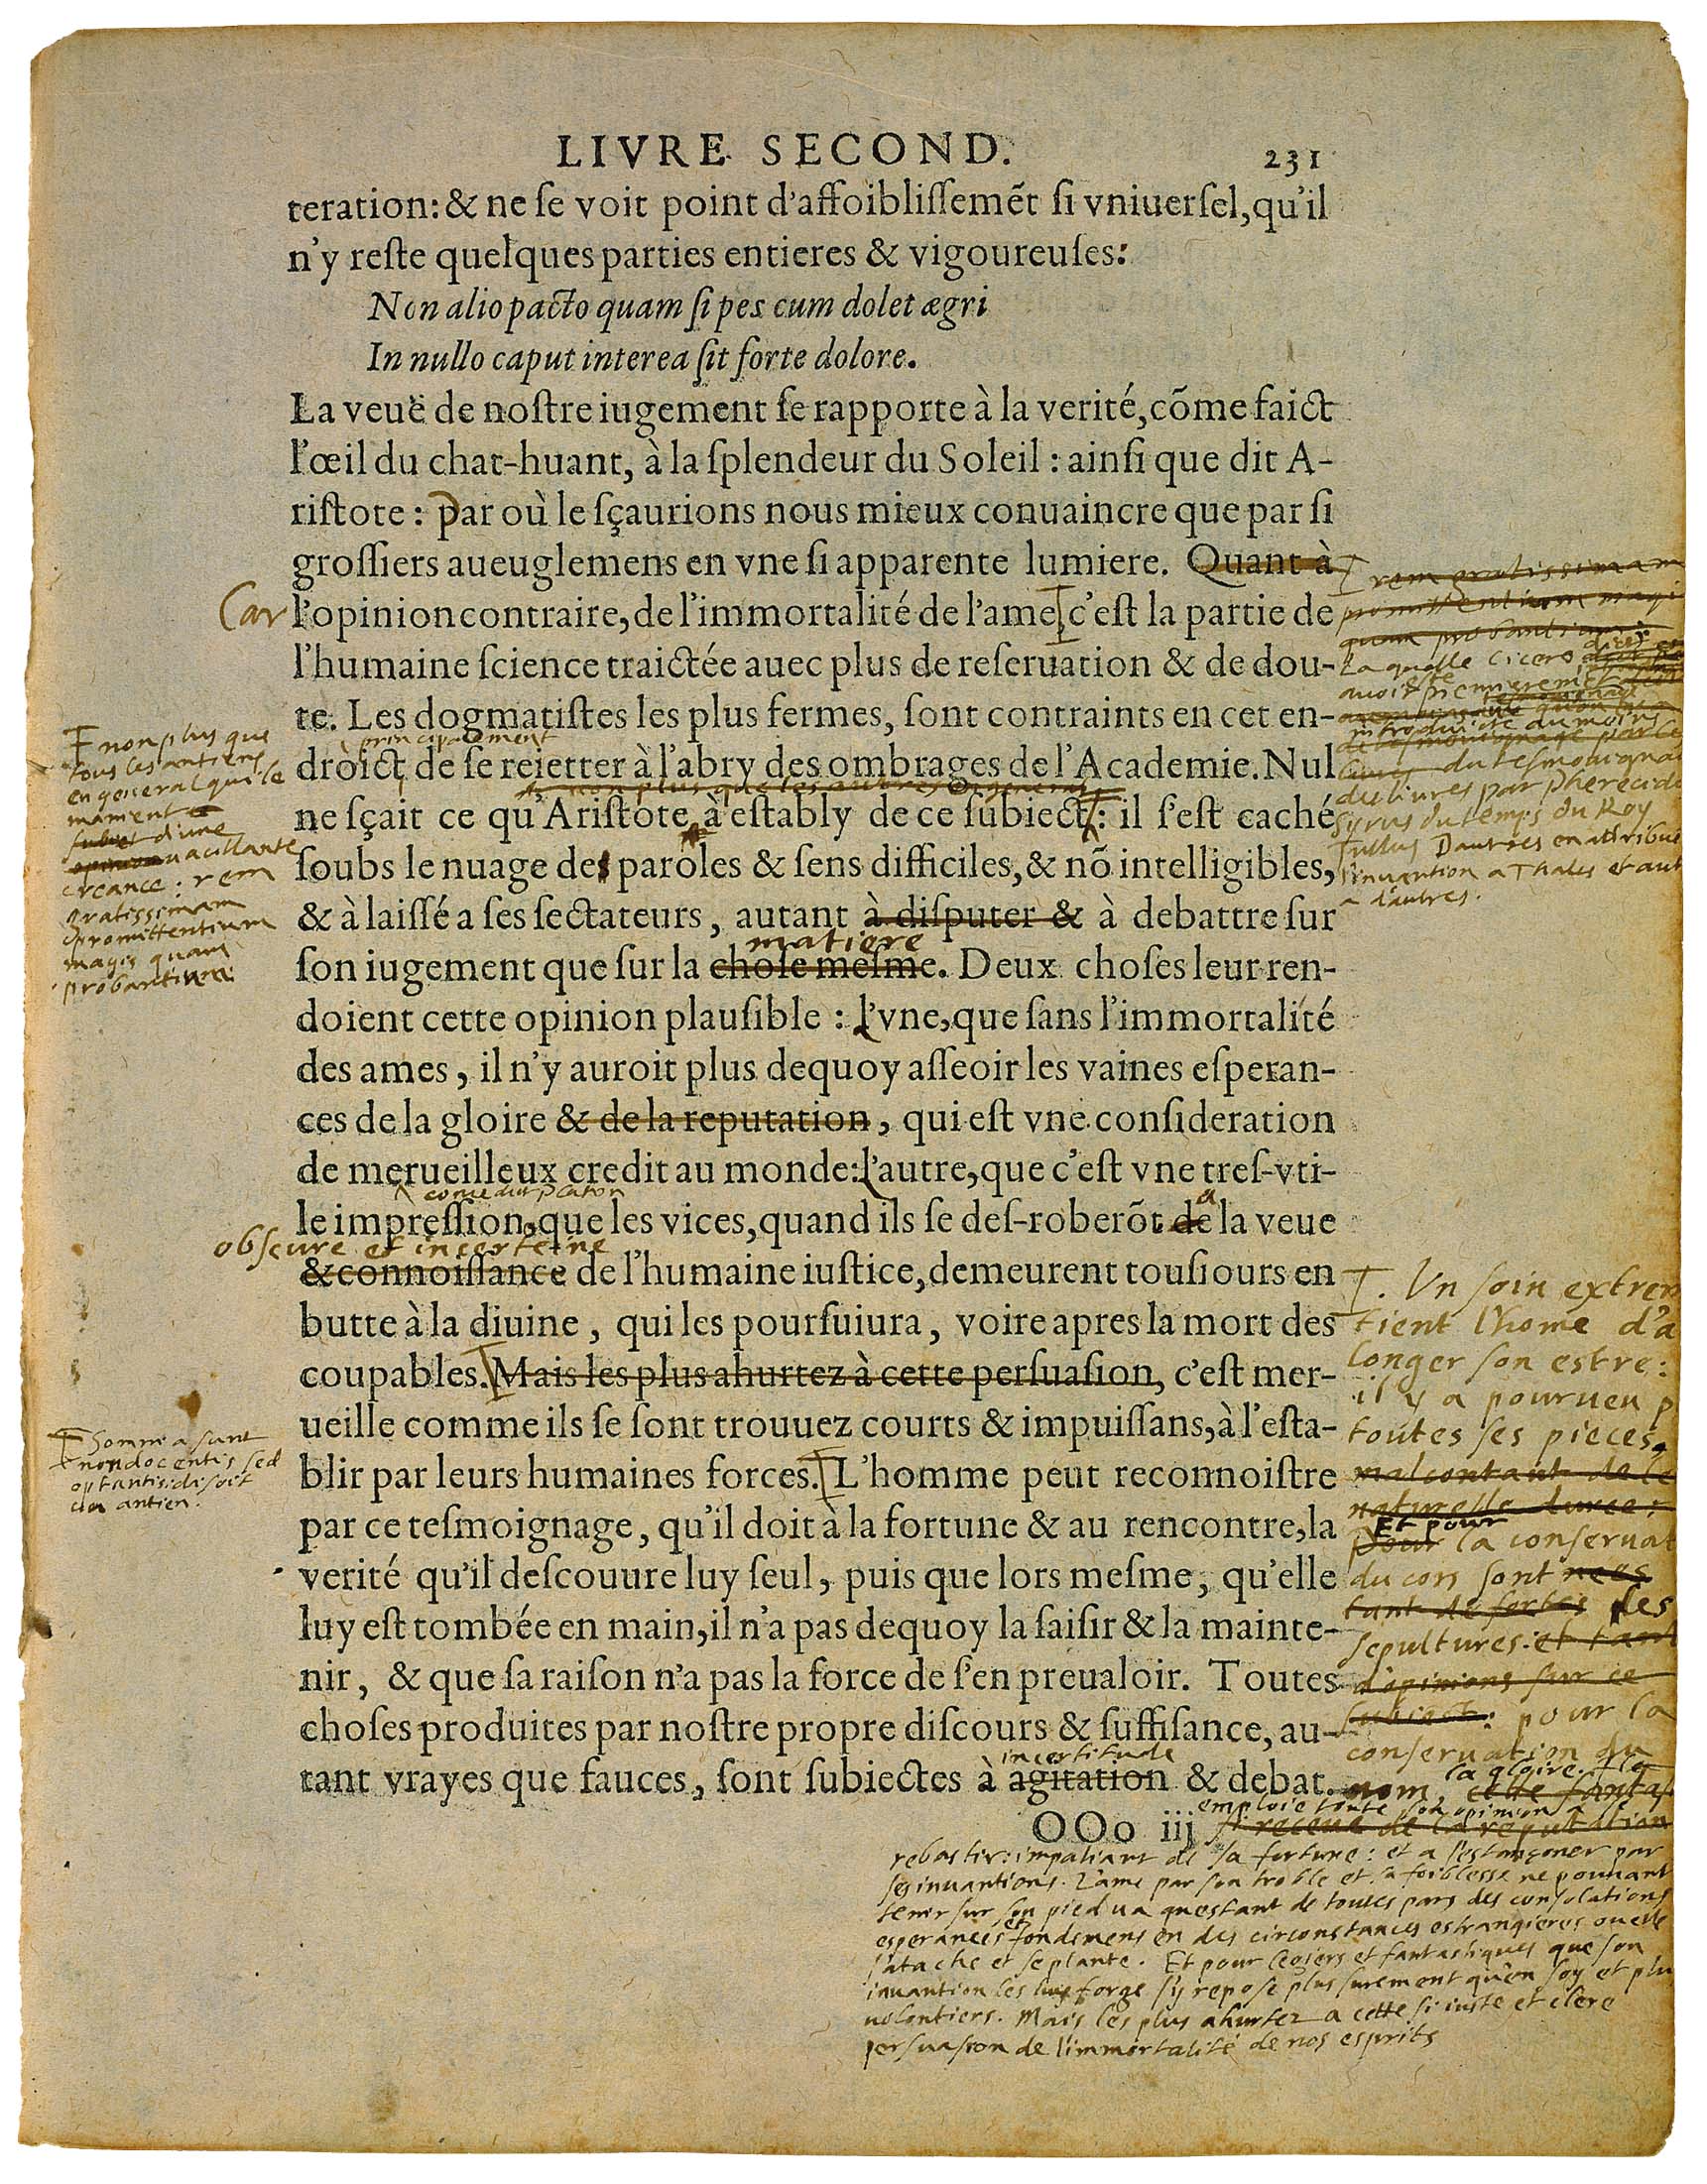 LIVRE SECOND. 231
teration: & ne ſe voit point d'affoibliſſemẽt ſi vniuerſel, qu'il
n'y reſte quelques parties entieres & vigoureuſes:
Non alio pacto quam ſi pes cum dolet ægri
In nullo caput interea ſit forte dolore.
La veuë de noſtre iugement ſe rapporte à la verité, cõme faict
l'œil du chat-huant, à la ſplendeur du Soleil : ainſi que dit A-
riſtote : Par où le ſçaurions nous mieux conuaincre que par ſi
groſſiers aueuglemens en vne ſi apparente lumiere. Quant à
Car l'opinion contraire, de l'immortalité de l'ame, c'eſt la partie de
l'humaine ſcience traictée auec plus de reſeruation & de dou-
te. Les dogmatiſtes les plus fermes, ſont contraints en cet en-
principalement
droict de ſe reietter à l'abry des ombrages de l'Academie. Nul
non plus que les autres
ne ſçait ce qu'Ariſtote à eſtably de ce ſubiect : il s'eſt caché
ſoubs le nuage des paroles & ſens difficiles, & nõ intelligibles,
& à laiſſé a ſes ſectateurs, autant à diſputer & à debattre ſur
matiere
ſon iugement que ſur la choſe meſme. Deux choſes leur ren-
doient cette opinion plauſible : l'vne, que ſans l'immortalité
des ames, il n'y auroit plus dequoy aſſeoir les vaines eſperan-
ces de la gloire & de la reputation, qui eſt vne conſideration
de merueilleux credit au monde: l'autre, que c'eſt vne treſ-vti-
come dict Platon
a
le impreſſion, que les vices, quand ils ſe deſ-roberõt de la veue
obscure et incerteine
& connoiſſance de l'humaine iuſtice, demeurent touſiours en
butte à la diuine, qui les pourſuiura, voire apres la mort des
coupables. Mais les plus ahurtez à cette perſuaſion, c'eſt mer-
ueille comme ils ſe ſont trouuez courts & impuiſſans, à l'eſta-
blir par leurs humaines forces. L'homme peut reconnoiſtre
par ce teſmoignage, qu'il doit à la fortune & au rencontre, la
verité qu'il deſcouure luy ſeul, puis que lors meſme, qu'elle
luy eſt tombée en main, il n'a pas dequoy la ſaiſir & la mainte-
nir, & que ſa raiſon n'a pas la force de s'en preualoir. Toutes
choſes produites par noſtre propre diſcours & ſuffiſance, au-
incertitude
tant vrayes que fauces, ſont ſubiectes à agitation & debat.
OOo iij
non plus que
tous les antiens
en general qui le
manient
subiet d'une
opinion vacillante
creance : rem
gratissimam
promittentium
magis quam
probantium.
Somnia sunt
non docentis sed
optantis: disoit
un antien.
rem gratissimam
promittentium magi
quam probantium
La quelle Cicero dict
avoir este premierement
introduicte du moins
du tesmouigna
des livres par Pherecide
Syrus du temps du Roy
Tullus D'autres en attribue
l'invantion a Thales et aut
a d'autres.
. Un soin extrem
tient l'home d'a
longer son estre:
il y a pourveu p
toutes ses pieces,
malcontant de le
naturelle duree:
Et pour
pour la conservat
du cors sont nees
tant de sortes les
sepultures. et tant
d'opinions sur ce
subiect: pour la
conservation du
nom, la gloire. Il a
cette fantas
emploie toute son opinion a se
si receue de la reputation
rebastir: impatiant de sa fortune: et a s'estançoner par
ses invantions. L'ame par son troble et sa foiblesse ne pouvant
tenir sur son pied va questant de toutes pars des consolations
esperances et fondemens en des circonstances estrangieres ou elle
s'atache et se plante. Et pour legiers et fantastiques que son
invantion les luy forge s'y repose plus surement qu'en soy et plu
volontiers. Mais les plus ahurtez a cette si iuste et clere
persuasion de l'immortalité de nos esprits